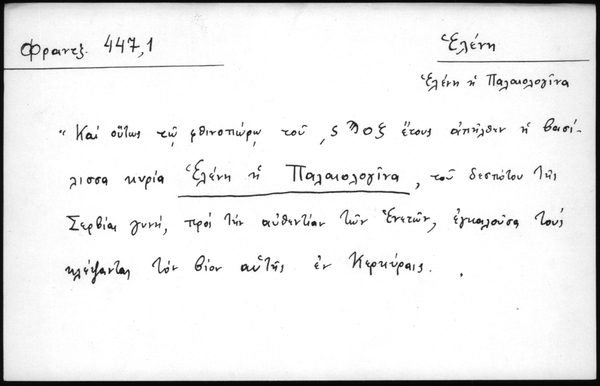 Φραντζ. 447,1
Ἑλένη
Ἑλένη ἡ Παλαιολογῖνα
"Καί οὕτως τῷ φθινοπώρῳ τοῦ ͵ϛϡοξ ἔτους ἀπῆλθεν ἡ βασί-
λισσα κυρία Ἑλένη ἡ Παλαιολογῖνα, τοῦ δεσπότου τῆς
Σερβίας γυνή, πρός τήν αὐθεντίαν τῶν Ἑνετῶν, ἐγκαλοῦσα τούς
κλέψαντας τόν βίον αὐτῆς ἐν Κερκύραις.